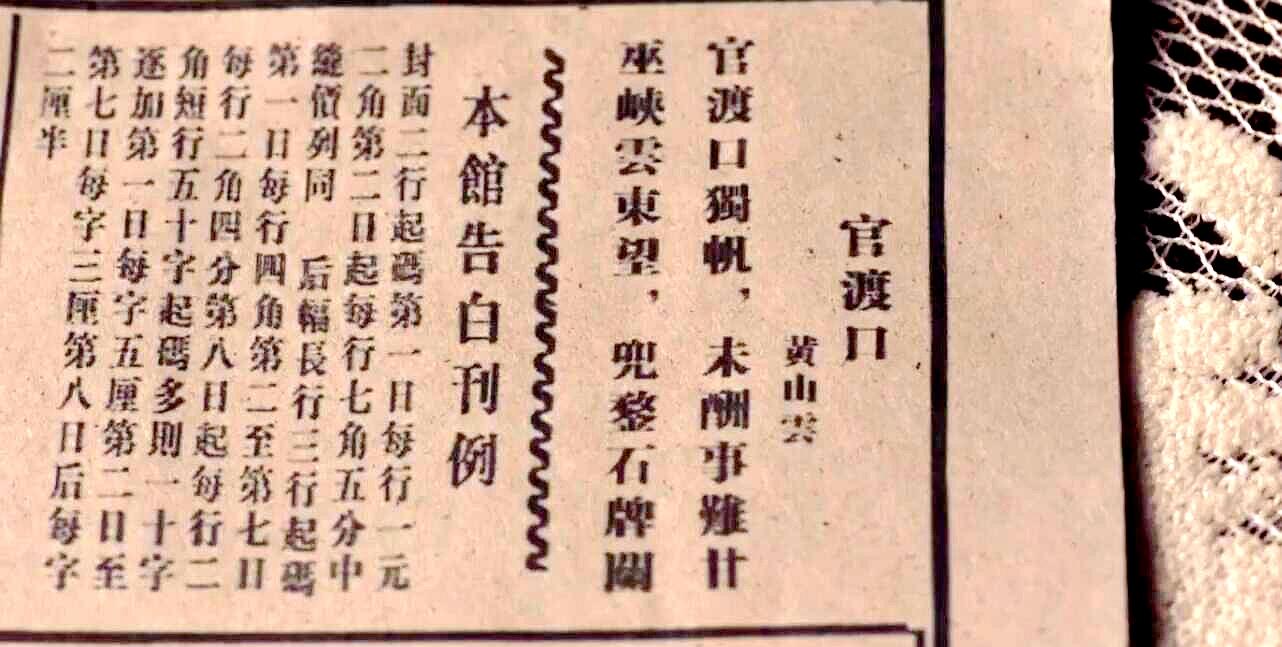 官渡口
黃山雲
官渡口獨帆，未酬事難甘
巫峽雲東望，兜鍪石牌關
本館告白刊例
封面二行起碼第一日每行一元
二角第二日起每行七角五分中
縫價列同 后幅長行三行起碼
第一日每行四角第二至第七日
每行二角四分第八日起每行二
角短行五十字起碼多則一十字
逐加第一日每字五厘第二日至
第七日每字三厘第八日后每字
二厘半